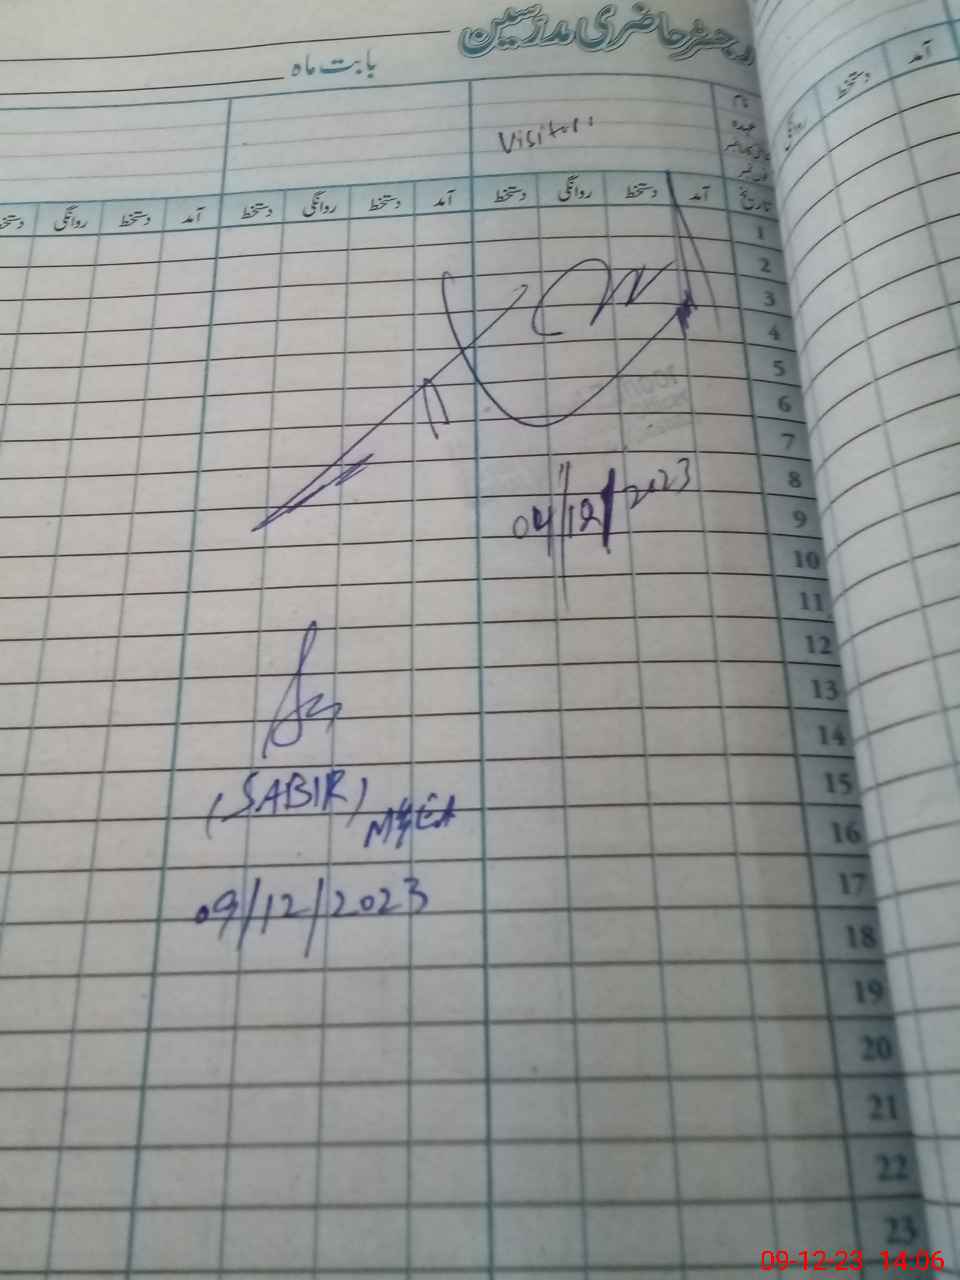 رجسٹر حاضری مدرسین
بابت ماہ
نام
عہدہ
Visitors
تاریخ آمد دستخط روانگی دستخط آمد دستخط روانگی دستخط آمد دستخط روانگی دستخط
آمد دستخط روانگی
1
2
3
4
5
6
7
8
9
10
11
12
13
14
15
16
17
18
19
20
21
22
23
04/12/2023
(SABIR)
09/12/2023
09-12-23 14:06